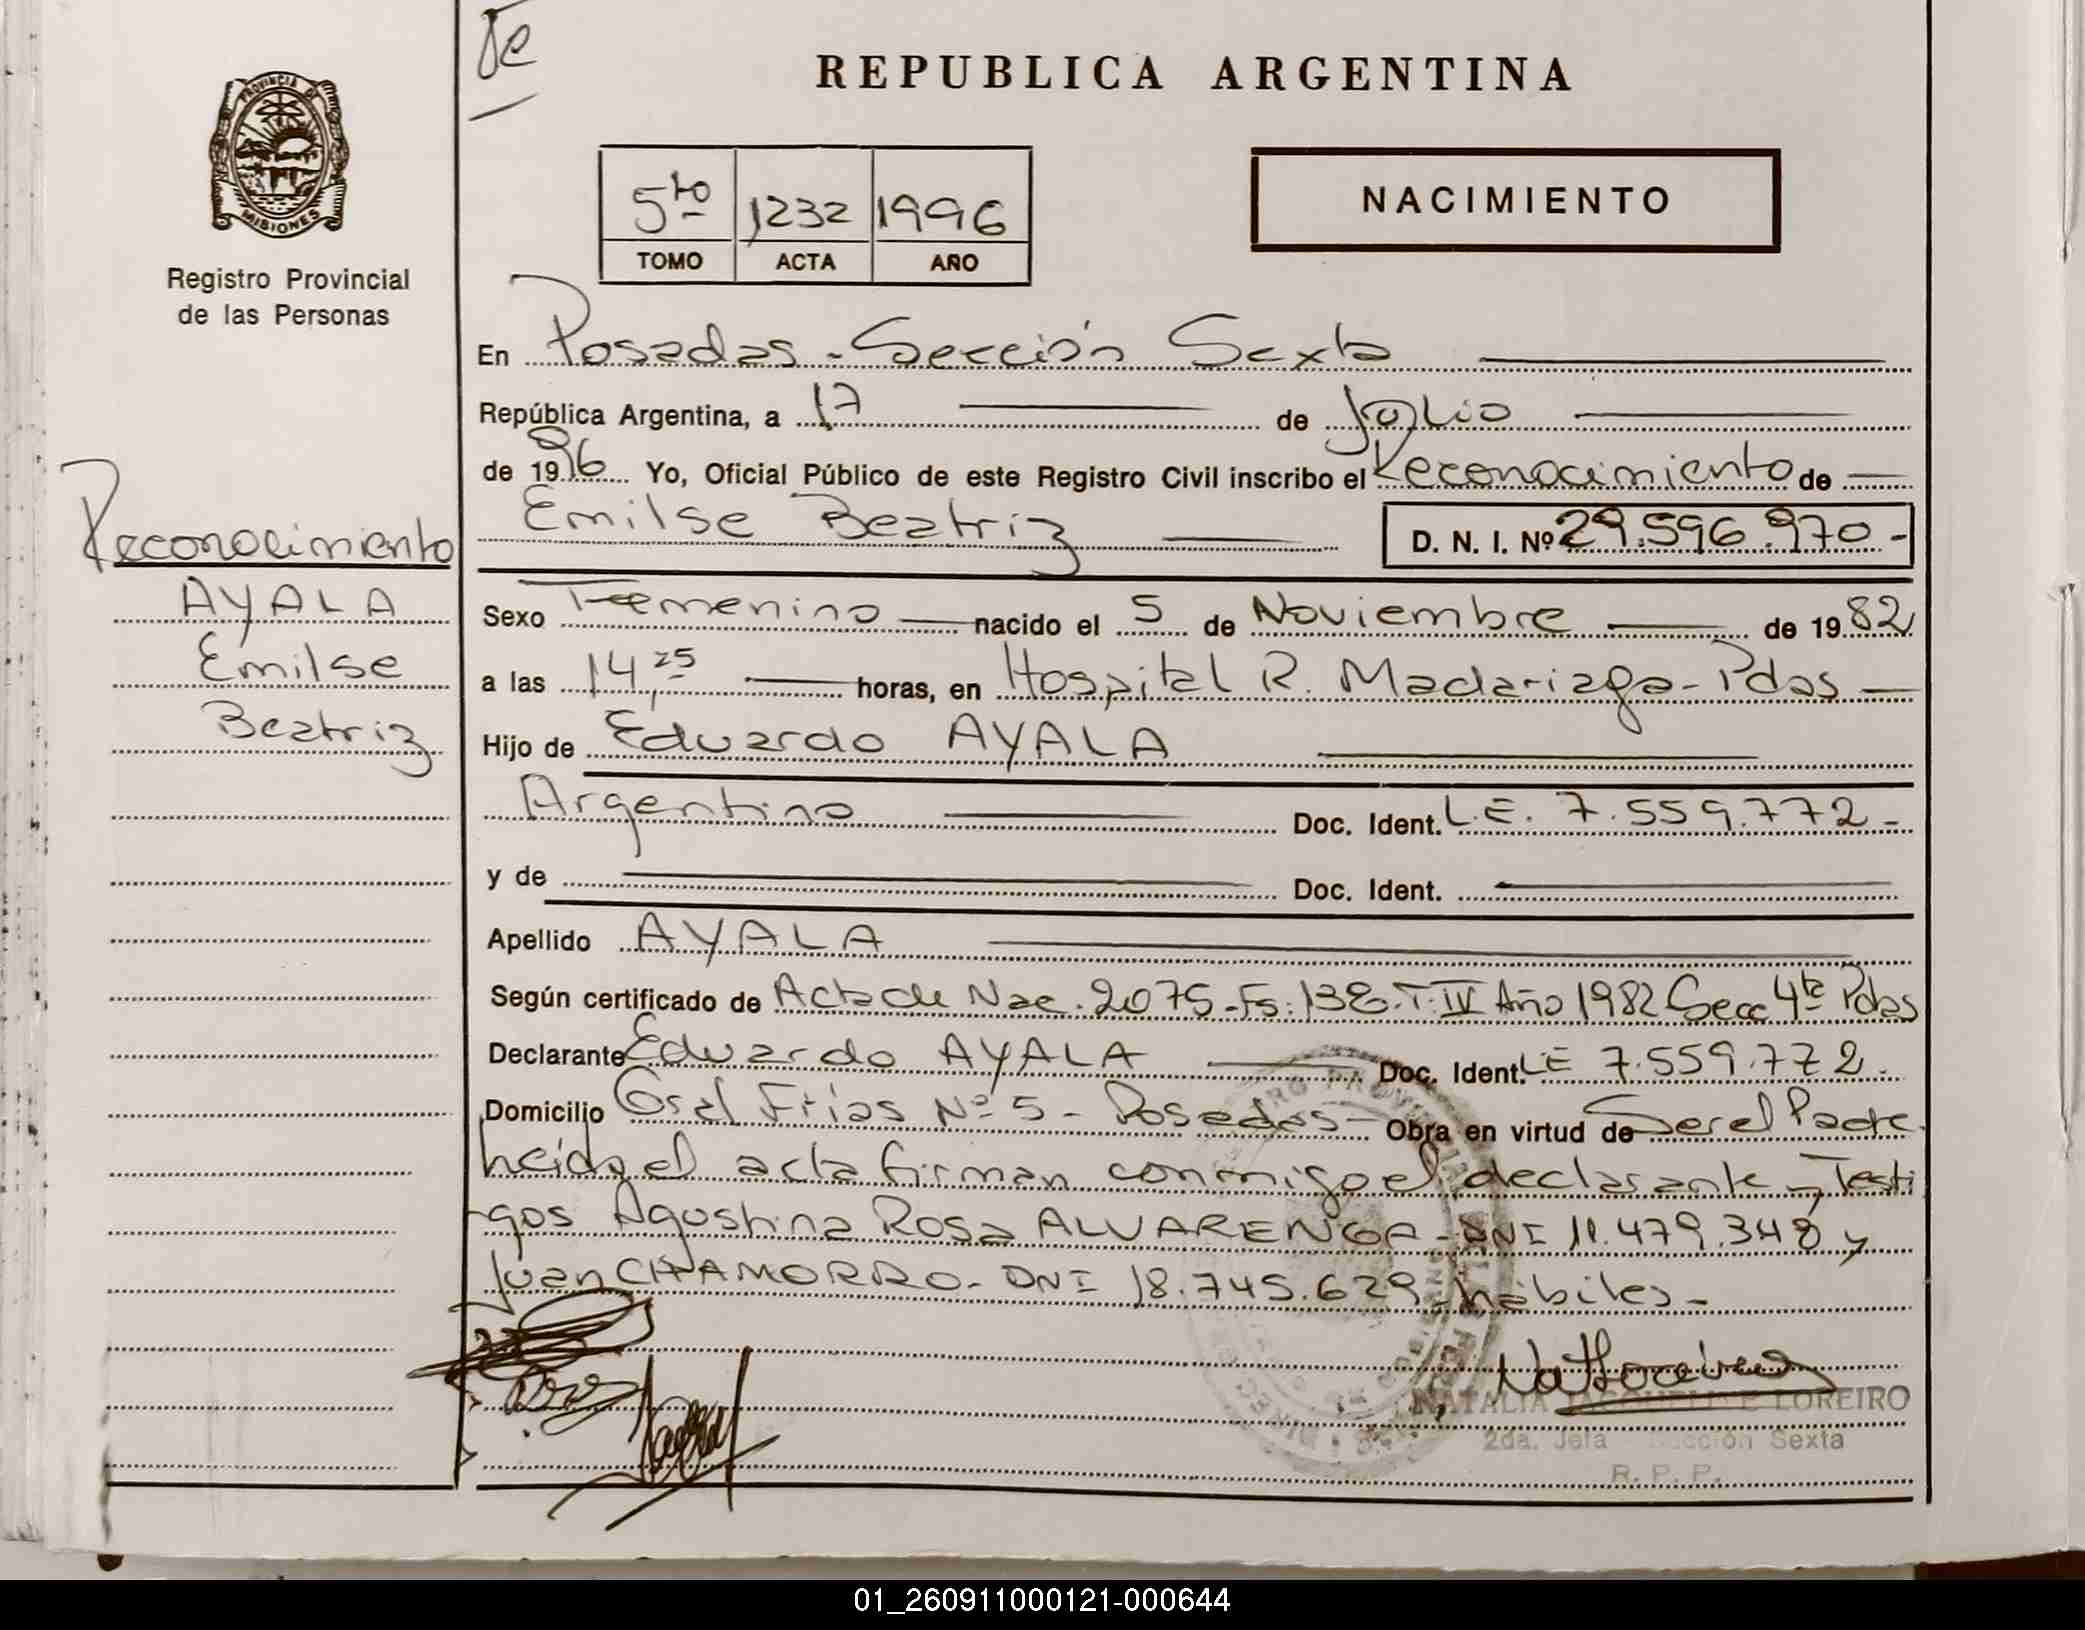 REPUBLICA ARGENTINA
PROVINCIA DE
MISIONES
Registro Provincial
de las Personas
5to 1232 1996
TOMO ACTA AÑO
NACIMIENTO
En Posadas - Sección Sexta
República Argentina, a 17 de Julio
de 1996 Yo, Oficial Público de este Registro Civil inscribo el Reconocimiento de
Emilse Beatriz D. N. I. Nº 29.596.970-
Reconocimiento
AYALA
Emilse
Beatriz
Sexo Femenino nacido el 5 de Noviembre de 1982
a las 14,25 horas, en Hospital R. Madariaga - Pdas
Hijo de Eduardo AYALA
Argentino Doc. Ident. L.E. 7.559.772-
y de Doc. Ident.
Apellido AYALA
Según certificado de Acta de Nac. 2075-Fs: 138-T: IV Año 1982 Secc 4ta Pdas
Declarante Eduardo AYALA Doc. Ident. LE 7.559.772-
Domicilio Gral Frias Nº 5 - Posadas - Obra en virtud de Ser el Padre.
Leida el acta firman conmigo el declarante y Testi
gos Agostina Rosa ALVARENGA - DNI 11.479.348 y
Juan CHAMORRO - DNI 18.745.629 - hábiles -
NATALIA JACQUELINE LOREIRO
2da. Jefa Sección Sexta
R. P. P.
01_260911000121-000644